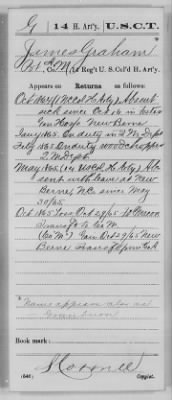 G | 14 H. Art'y. | U.S.C.T.
James Graham*
, Co. M, 14 Reg't U. S. Col'd H. Art'y.
Appears on Returns as follows:
Oct 1864 Absent
sick since Oct in
Gen Hosp. New Berne
Jany 1865 On duty in Q M Dept
Feby 1865 On duty wood chopper
Q M Dept
May 1865 (14 USC H Arty) Ab
sent with leave at New
Berne, N.C. since May
30/65
Oct 1865 Loss Oct 29/65
Transf to Co
(Co M) Gain Oct 29/65 New
Berne transf from Co
*Name appears also as
Book mark:
(646) Copyist.